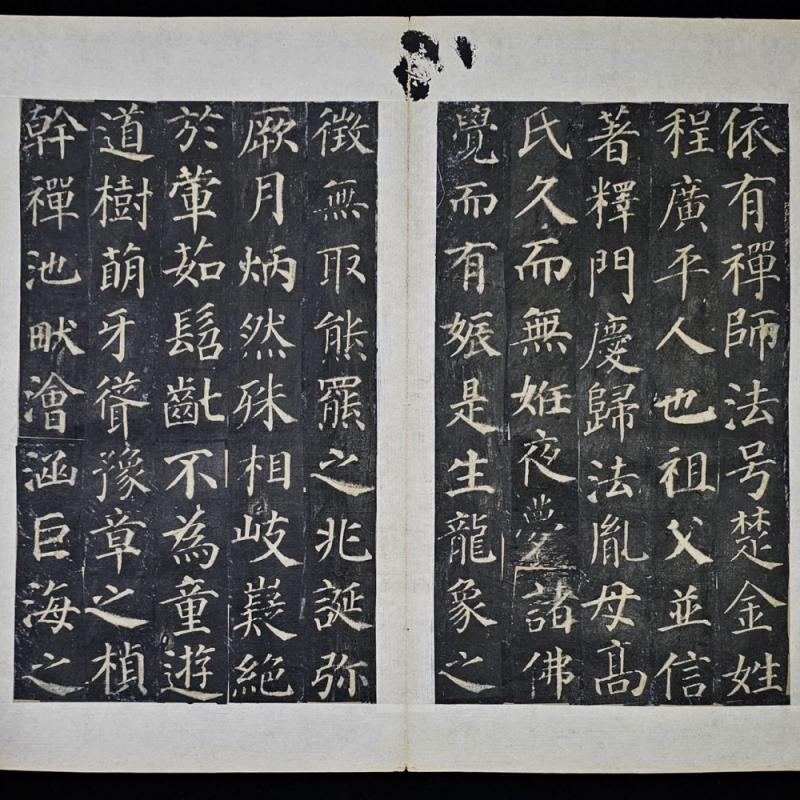 依有禪師法号楚金姓
程廣平人也祖父並信
著釋門慶歸法胤母髙
氏久而無姙夜夢諸佛
覺而有娠是生龍象之
徵無取熊羆之兆誕弥
厥月炳然殊相岐嶷絕
於葷茹髫齔不為童遊
道樹萌牙聳豫章之楨
幹禪池畎澮涵巨海之